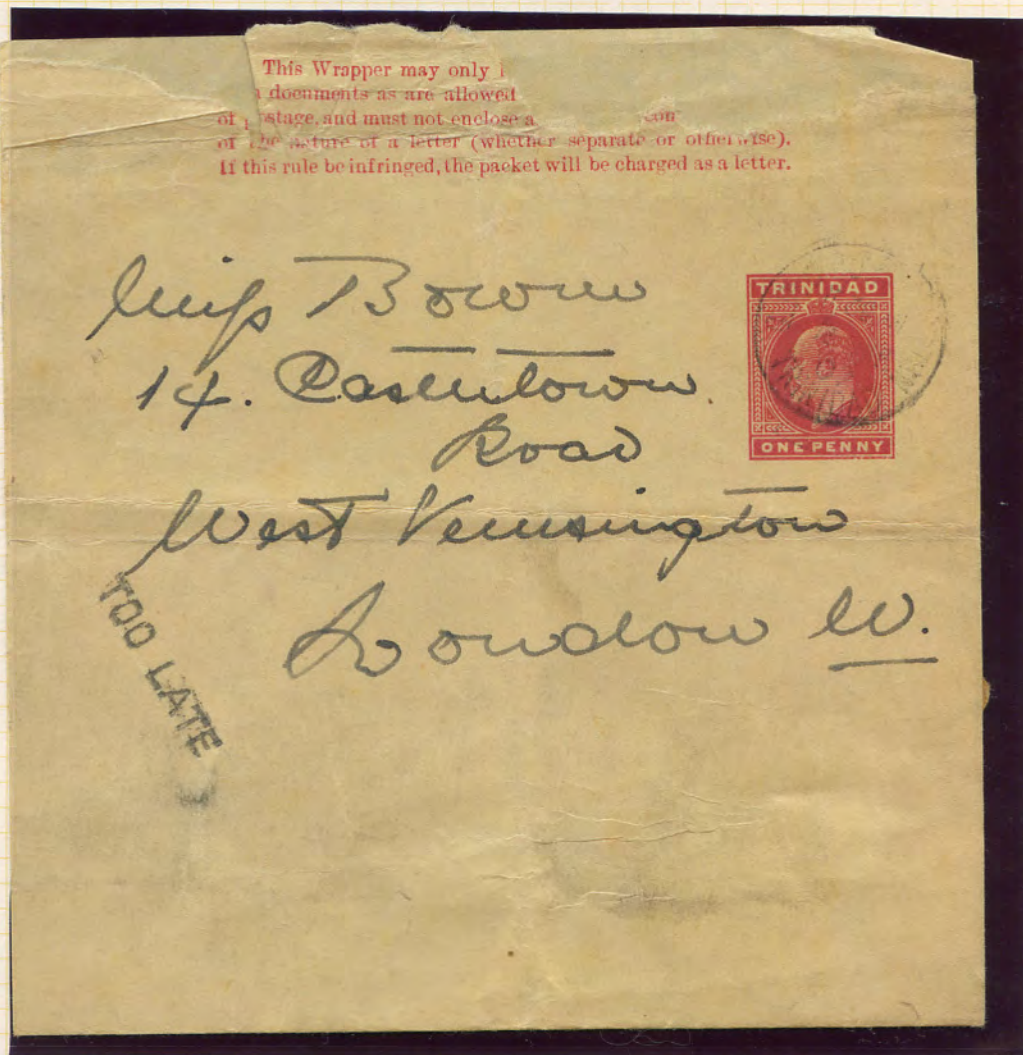 This Wrapper may only
documents as are allowed
of postage, and must not enclose a
of the nature of a letter (whether separate or otherwise).
If this rule be infringed, the packet will be charged as a letter.
TRINIDAD
ONE PENNY
Miss Bown
14. Castletown
Road
West Kensington
London W.
TOO LATE